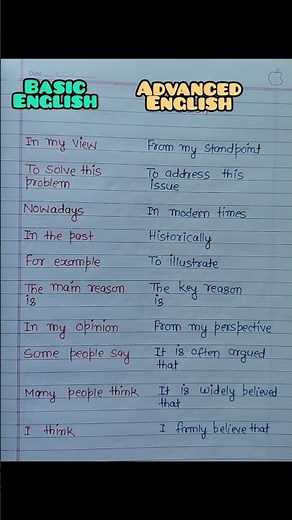 Date
BASIC ADVANCED
ENGLISH ENGLISH
In my view From my standpoint
To solve this To address this
problem issue
Nowadays In modern times
In the past Historically
For example To illustrate
The main reason The key reason
is is
In my opinion From my perspective
Some people say It is often argued
that
Many people think It is widely believed
that
I think I firmly believe that